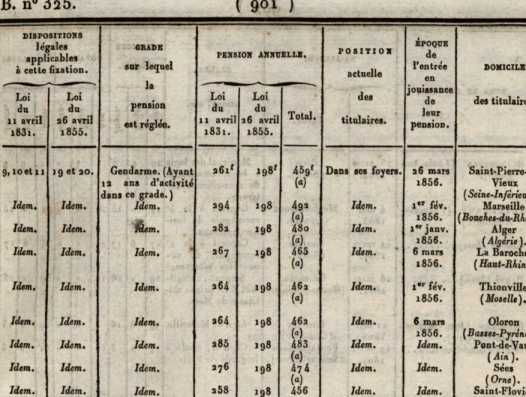 B. nº 325. ( 901 )
DISPOSITIONS légales applicables à cette fixation. | GRADE sur lequel la pension est réglée. | PENSION ANNUELLE. | POSITION actuelle des titulaires. | ÉPOQUE de l'entrée en jouissance de leur pension. | DOMICILE des
Loi du 11 avril 1831. | Loi du 26 avril 1855. | Loi du 11 avril 1831. | Loi du 26 avril 1855. | Total.
9, 10 et 11 | 19 et 20. | Gendarme. (Ayant 12 ans d'activité dans ce grade.) | 261f | 198f | 459f (a) | Dans ses foyers. | 26 mars 1856. | Saint-Pierre-Vieux
Idem. | Idem. | Idem. | 294 | 198 | 492 (a) | Idem. | 1er fév. 1856. | Marseille
Idem. | Idem. | Idem. | 282 | 198 | 480 (a) | Idem. | 1er janv. 1856. | Alger (Algérie).
Idem. | Idem. | Idem. | 267 | 198 | 465 (a) | Idem. | 6 mars 1856. | La Baroche
Idem. | Idem. | Idem. | 264 | 198 | 462 (a) | Idem. | 1er fév. 1856. | Thionville (Moselle).
Idem. | Idem. | Idem. | 264 | 198 | 462 (a) | Idem. | 6 mars 1856. | Oloron
Idem. | Idem. | Idem. | 285 | 198 | 483 (a) | Idem. | Idem. | (Ain).
Idem. | Idem. | Idem. | 276 | 198 | 474 (a) | Idem. | Idem. | Sées (Orne).
Idem. | Idem. | Idem. | 258 | 198 | 456 | Idem. | Idem.